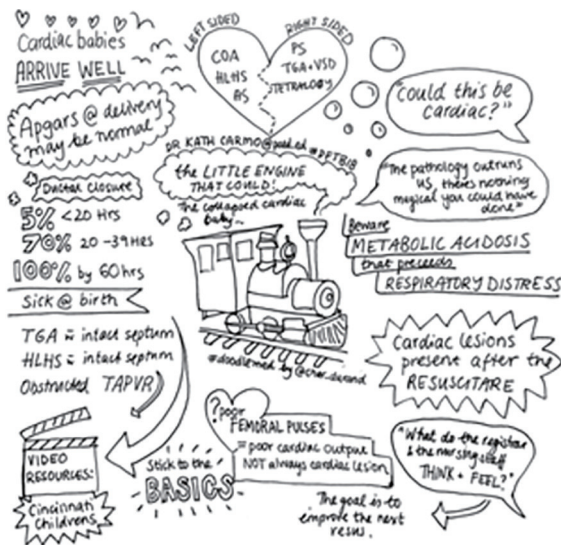 Cardiac babies
ARRIVE WELL
Apgars @ delivery
may be normal
Ductal closure
5% <20 Hrs
70% 20-39 Hrs
100% by 60 hrs
Sick @ birth
TGA = intact septum
HLHS = intact septum
Obstructed TAPVR
VIDEO
RESOURCES:
Cincinnati
Childrens
LEFT SIDED
COA
HLHS
AS
RIGHT SIDED
PS
TGA+VSD
TETRALOGY
DR KATH CARMO
#DFTB18
the LITTLE ENGINE
THAT COULD!
The collapsed cardiac
baby...
#doodlemed by @char_durand
? poor
FEMORAL PULSES
= poor cardiac output
NOT always cardiac lesion
Stick to the
BASICS
The goal is to
improve the next
resus.
"Could this be
cardiac?"
"The pathology outruns
us, theres nothing
magical you could have
done"
Beware
METABOLIC ACIDOSIS
that preceeds
RESPIRATORY DISTRESS
Cardiac lesions
present after the
RESUSCITARE
"What do the registrar
& the nursing staff
THINK + FEEL?"